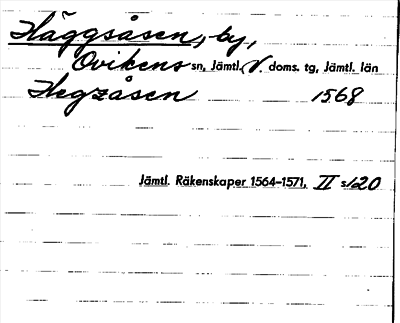 Häggsåsen, by,
Ovikens sn, Jämtl. V. doms. tg, Jämtl. län
Hegzåsen 1568
Jämtl. Räkenskaper 1564–1571, II s. 120